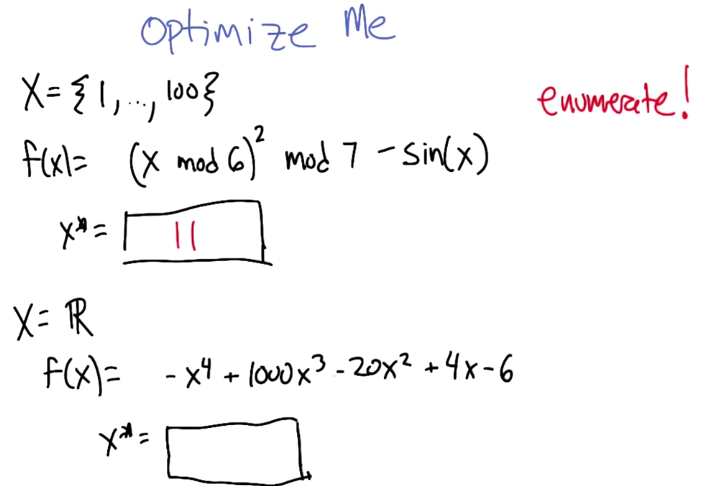 Optimize Me
X = {1, ..., 100}
enumerate!
f(x) = (x mod 6)² mod 7 - sin(x)
x* = 11
X = ℝ
f(x) = -x⁴ + 1000x³ - 20x² + 4x - 6
x* =